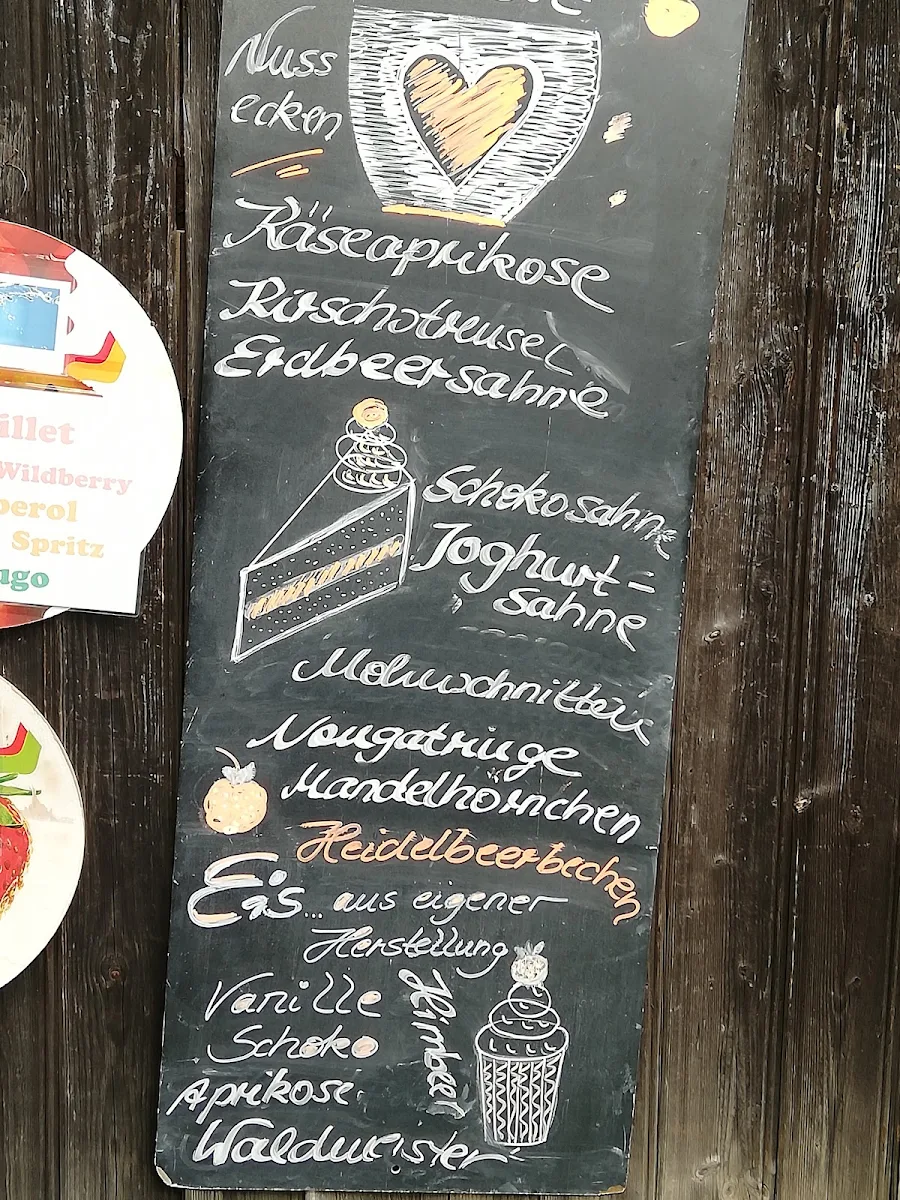 Nuss
ecken
Käseaprikose
Kirschstreusel
Erdbeersahne
Schokosahne
Joghurt-
sahne
Mohnschnitten
Nougatringe
Mandelhörnchen
Heidelbeerbechen
Eis... aus eigener
Herstellung
Vanille
Schoko
Himbeer
Aprikose
Waldmeister
illet
Wildberry
perol
Spritz
ugo